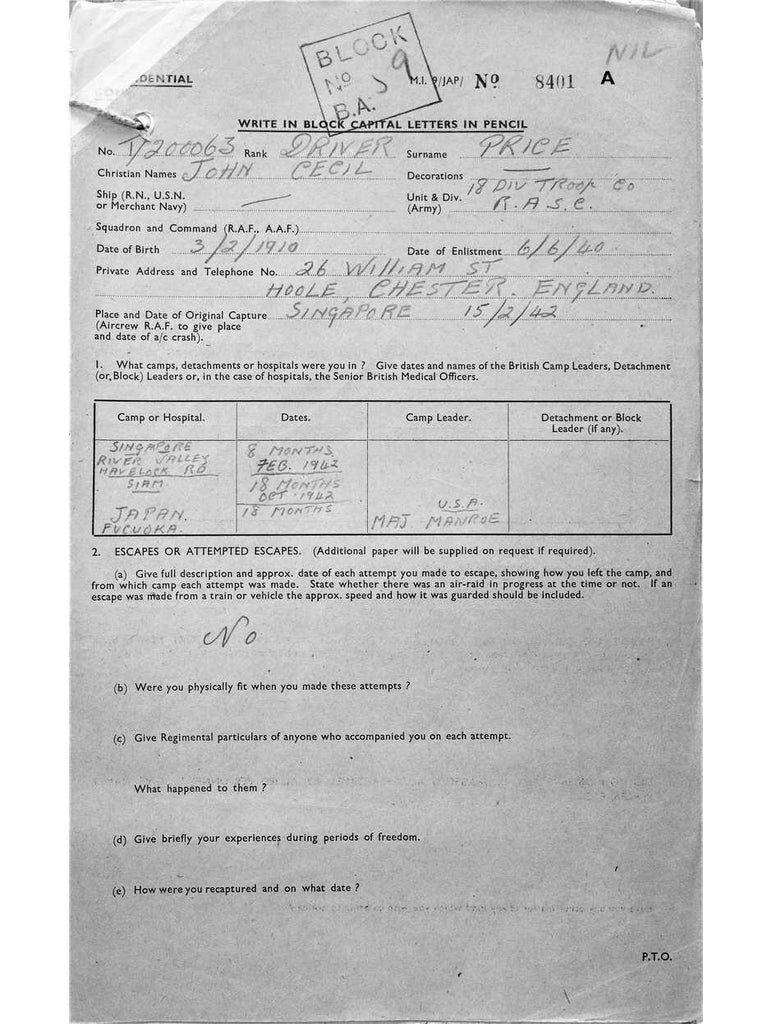 NIL
BLOCK
No 59
B.A.
DENTIAL
M.I. 9/JAP/ No 8401 A
WRITE IN BLOCK CAPITAL LETTERS IN PENCIL
No. T/200063 Rank DRIVER Surname PRICE
Christian Names JOHN CECIL Decorations —
Ship (R.N., U.S.N. or Merchant Navy) — Unit & Div. (Army) 18 DIV TROOP CO R.A.S.C.
Squadron and Command (R.A.F., A.A.F.)
Date of Birth 3/2/1910 Date of Enlistment 6/6/40
Private Address and Telephone No. 26 WILLIAM ST
HOOLE, CHESTER. ENGLAND.
Place and Date of Original Capture SINGAPORE 15/2/42
(Aircrew R.A.F. to give place
and date of a/c crash).
1. What camps, detachments or hospitals were you in ? Give dates and names of the British Camp Leaders, Detachment
(or Block) Leaders or, in the case of hospitals, the Senior British Medical Officers.
Camp or Hospital. Dates. Camp Leader. Detachment or Block Leader (if any).
SINGAPORE 8 MONTHS
RIVER VALLEY FEB. 1942
HAVELOCK RD 18 MONTHS
SIAM. OCT. 1942
JAPAN. 18 MONTHS U.S.A.
FUCUOKA. MAJ MANROE
2. ESCAPES OR ATTEMPTED ESCAPES. (Additional paper will be supplied on request if required).
(a) Give full description and approx. date of each attempt you made to escape, showing how you left the camp, and
from which camp each attempt was made. State whether there was an air-raid in progress at the time or not. If an
escape was made from a train or vehicle the approx. speed and how it was guarded should be included.
No
(b) Were you physically fit when you made these attempts ?
(c) Give Regimental particulars of anyone who accompanied you on each attempt.
What happened to them ?
(d) Give briefly your experiences during periods of freedom.
(e) How were you recaptured and on what date ?
P.T.O.